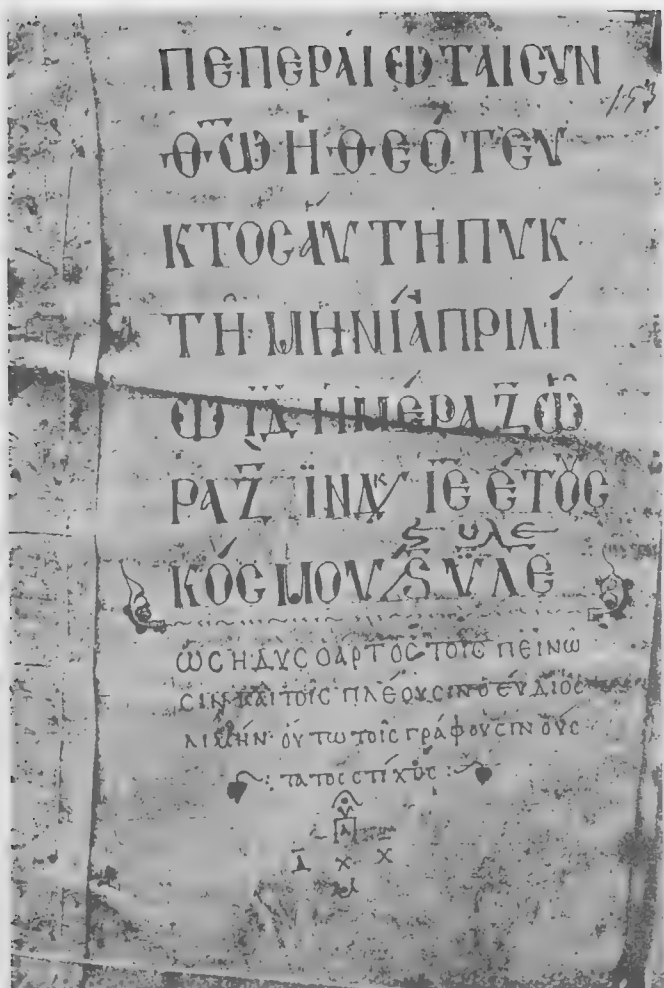 ΠΕΠΕΡΑΙΩΤΑΙ ΣΥΝ
153
Θ̅Ω̅ Η ΘΕΟΤΕΥ
ΚΤΟΣ ΑΥΤΗ ΠΥΚ
ΤΗ ΜΗΝΙ ΑΠΡΙΛΙ
Ω ΙΔ̅ ΗΜΕΡΑ Ζ̅ Ω
ΡΑ Ζ̅ ΙΝΔ ΙΕ̅ ΕΤΟΥΣ
ϛ υλε
ΚΟΣΜΟΥ ϚΥΛΕ
ΩΣ ΗΔΥΣ Ο ΑΡΤΟΣ ΤΟΙΣ ΠΕΙΝΩ
ΣΙΝ ΚΑΙ ΤΟΙΣ ΠΛΕΟΥΣΙΝ Ο ΕΥΔΙΟΣ
ΛΙΜΗΝ ΟΥΤΩ ΤΟΙΣ ΓΡΑΦΟΥΣΙΝ Ο ΥΣ
ΤΑΤΟΣ ΣΤΙΧΟΣ